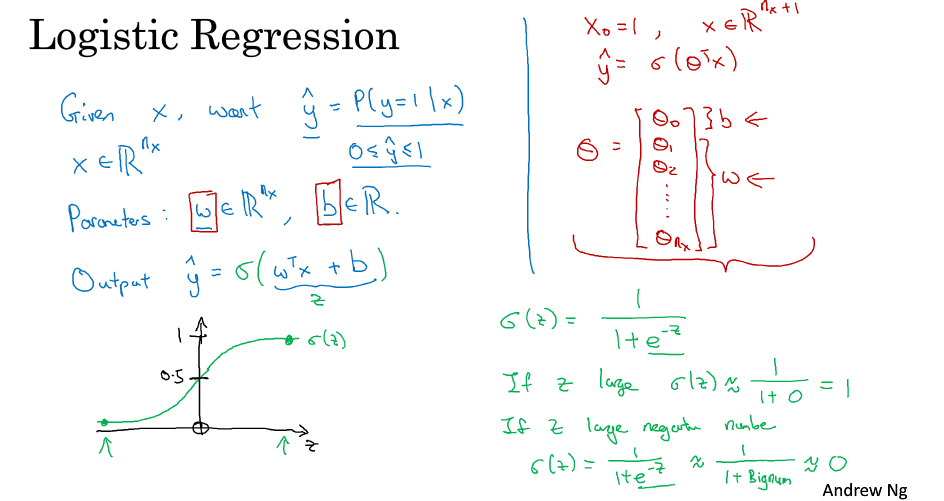 Logistic Regression
Given x, want ŷ = P(y=1|x)
x ∈ ℝ^{n_x}
0 ≤ ŷ ≤ 1
Parameters: w ∈ ℝ^{n_x}, b ∈ ℝ.
Output ŷ = σ(w^T x + b)
z
1
σ(z)
0.5
z
x_0 = 1, x ∈ ℝ^{n_x+1}
ŷ = σ(θ^T x)
θ = [θ_0 } b ←
θ_1
θ_2
⋮ } w ←
θ_{n_x}]
σ(z) = 1 / (1 + e^{-z})
If z large σ(z) ≈ 1 / (1 + 0) = 1
If z large negative number
σ(z) = 1 / (1 + e^{-z}) ≈ 1 / (1 + Bignum) ≈ 0
Andrew Ng